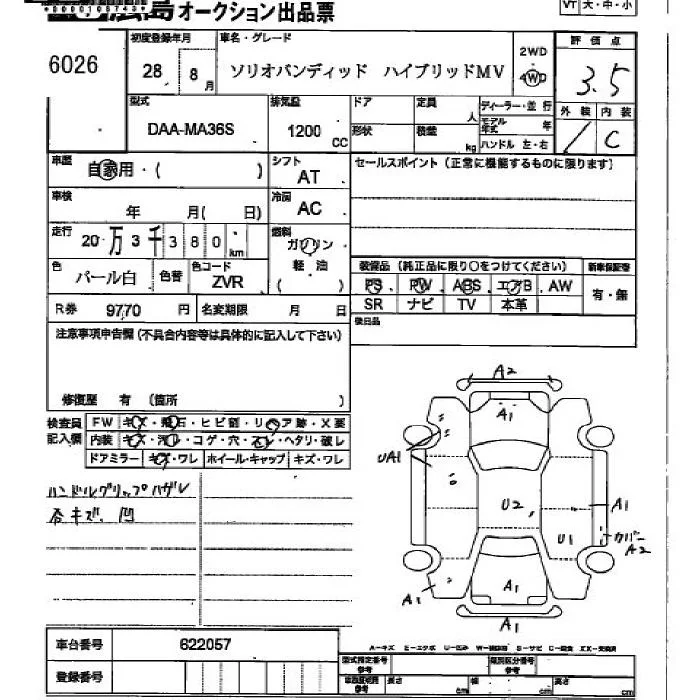 広島 オークション出品票
*00001087435*
VT 大・中・小
6026
初度登録年月 28 8月
車名・グレード ソリオバンディッド ハイブリッドMV
2WD
4WD
評価点 3.5
型式 DAA-MA36S
排気量 1200 CC
ドア 定員 人
形状 積載 kg
ディーラー・並行
モデル年式 年
ハンドル 左・右
外装 内装 C
車歴 自家用・( )
シフト AT
セールスポイント(正常に機能するものに限ります)
車検 年 月( 日)
冷房 AC
走行 20万3千380 km
燃料 ガソリン
軽・油
( )
色 パール白 色替 色コード ZVR
装備品(純正品に限り○をつけてください)
新車保証書
PS PW ABS エアB AW
有・無
SR ナビ TV 本革
R券 9770 円 名変期限 月 日
後日品
注意事項申告欄(不具合内容等は具体的に記入して下さい)
修復歴 有 (箇所 )
検査員記入欄
FW キズ・飛石・ヒビ割・リペア跡・X要
内装 キズ・汚レ・コゲ・穴・スレ・ヘタリ・破レ
ドアミラー キズ・ワレ ホイール・キャップ キズ・ワレ
ハンドルグリップハガレ
各キズ、凹
A2
A1
UA1
U2
A1
U1
カバー A2
A1
A1
A1
車台番号 622057
登録番号
A-キズ E-エクボ U-凹み W-補修跡 S-サビ C-腐食 XX-交換済
型式指定番号 参考
類別区分番号 参考
長さ cm 幅 cm 高さ cm